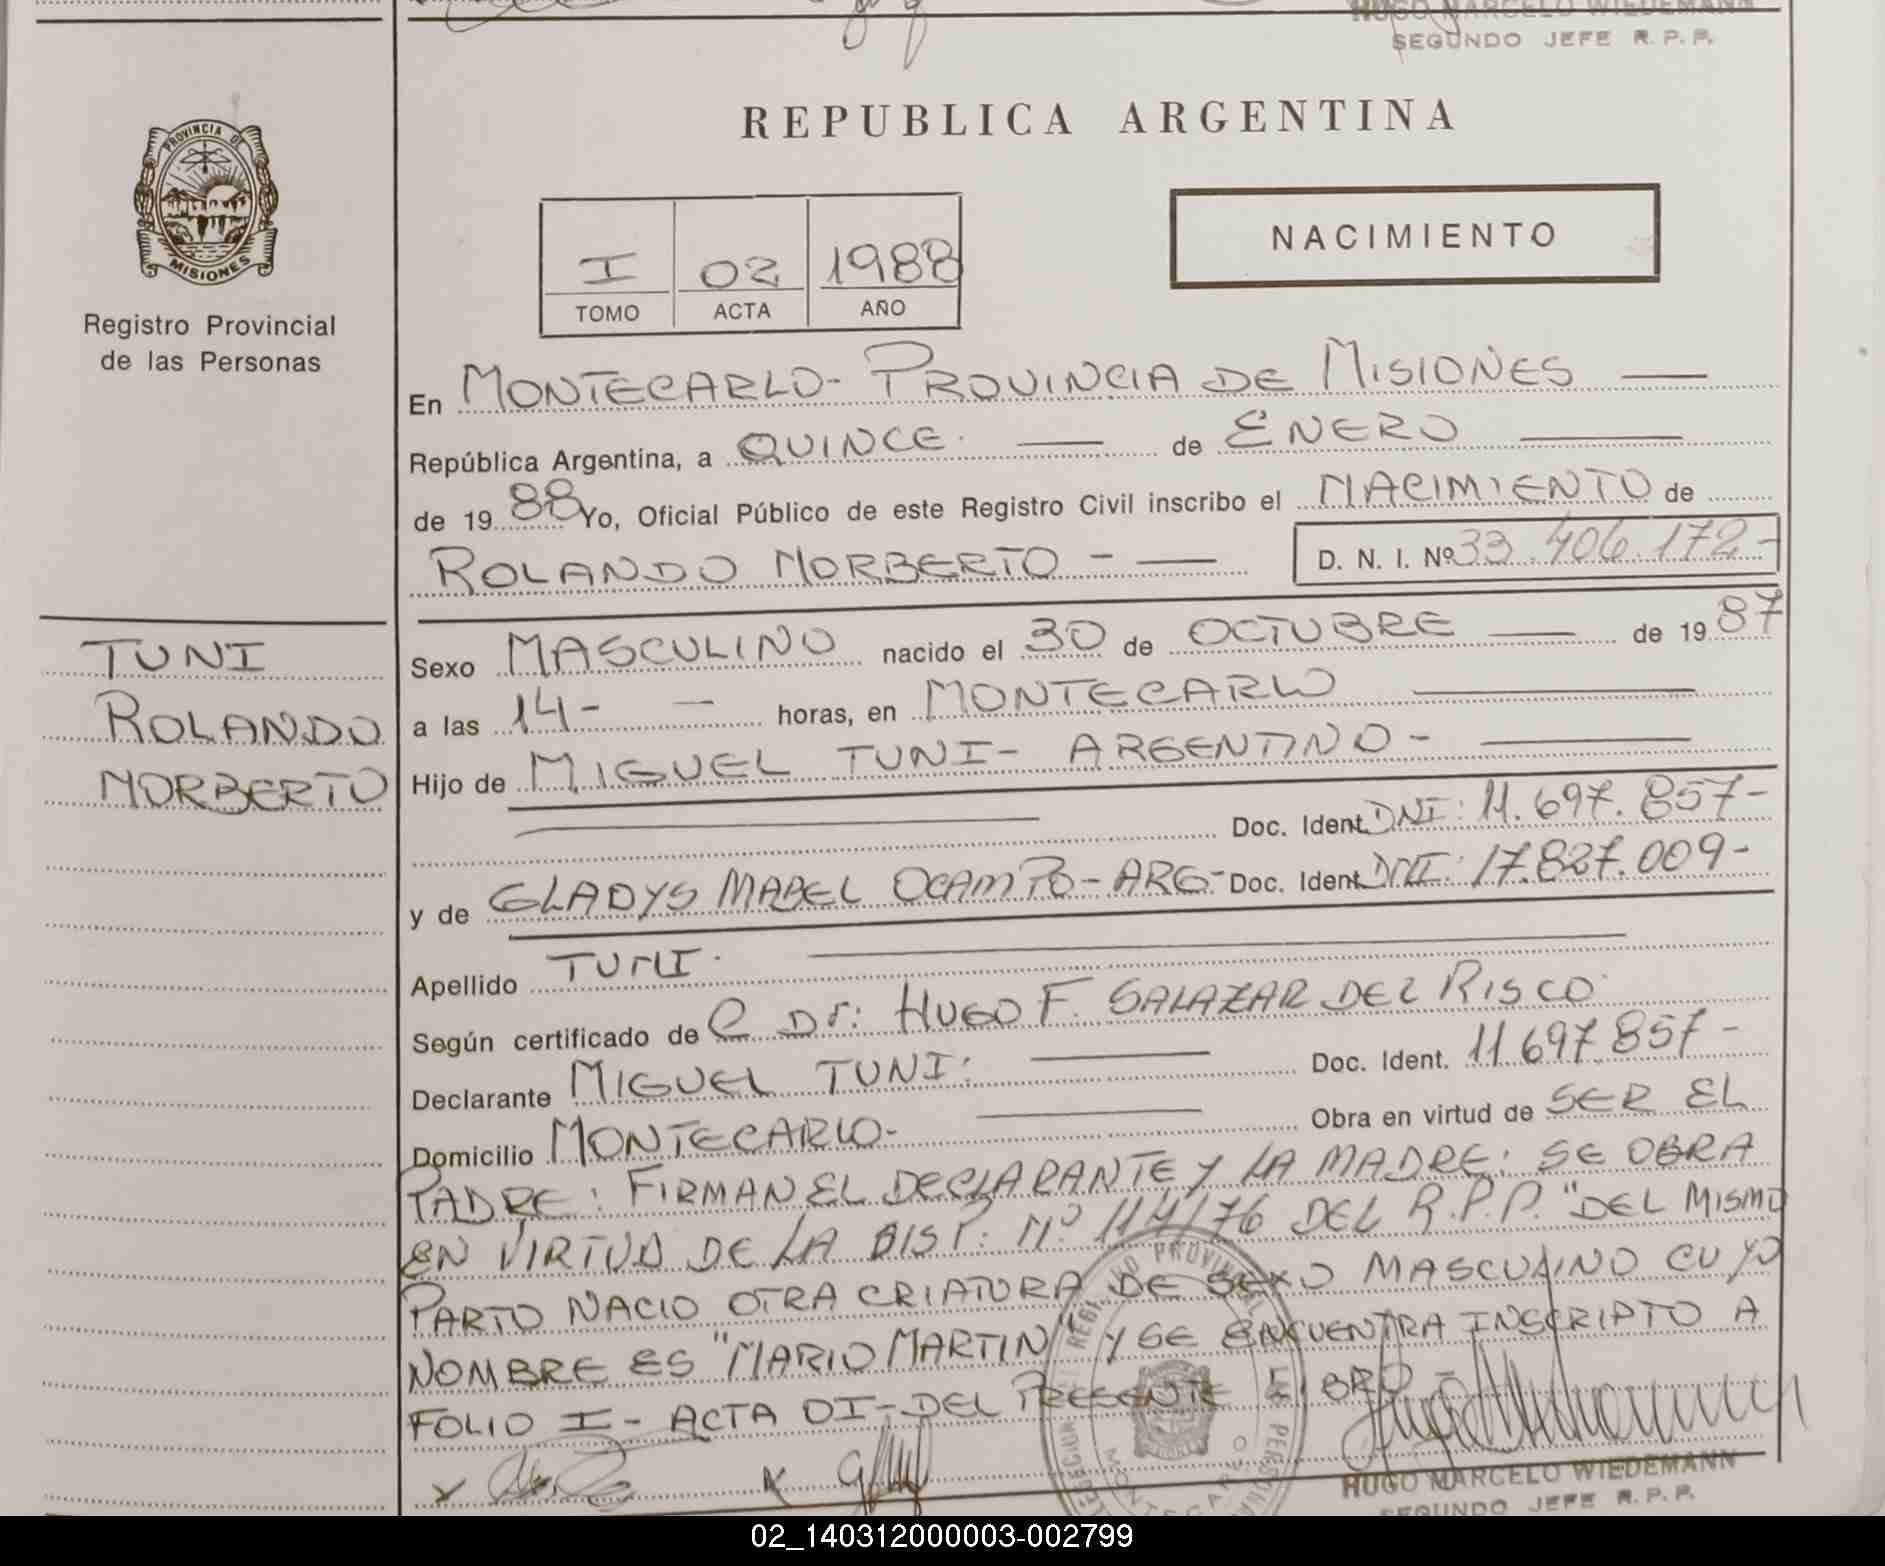 HUGO MARCELO WIEDEMANN
SEGUNDO JEFE R.P.P.
PROVINCIA DE
MISIONES
Registro Provincial
de las Personas
REPUBLICA ARGENTINA
I 02 1988
TOMO ACTA AÑO
NACIMIENTO
En MONTECARLO- PROVINCIA DE MISIONES —
República Argentina, a QUINCE. — de ENERO —
de 1988 Yo, Oficial Público de este Registro Civil inscribo el NACIMIENTO de
ROLANDO NORBERTO - — D. N. I. Nº 33.406.172-
TUNI
ROLANDO
NORBERTO
Sexo MASCULINO nacido el 30 de OCTUBRE — de 1987
a las 14- — horas, en MONTECARLO —
Hijo de MIGUEL TUNI- ARGENTINO- —
— Doc. Ident. DNI: 11.697.857-
y de GLADYS MABEL OCAMPO- ARG- Doc. Ident. DNI: 17.827.009-
Apellido TUNI. —
Según certificado de Dr: HUGO F. SALAZAR DEL RISCO
Declarante MIGUEL TUNI: — Doc. Ident. 11.697.857-
Domicilio MONTECARLO- — Obra en virtud de SER EL
PADRE: FIRMAN EL DECLARANTE Y LA MADRE: SE OBRA
EN VIRTUD DE LA DISP. Nº 114/76 DEL R.P.P. "DEL MISMO
PARTO NACIO OTRA CRIATURA DE SEXO MASCULINO CUYO
NOMBRE ES "MARIO MARTIN" Y SE ENCUENTRA INSCRIPTO A
FOLIO I- ACTA 01- DEL PRESENTE LIBRO-
HUGO MARCELO WIEDEMANN
SEGUNDO JEFE R.P.P.
02_140312000003-002799